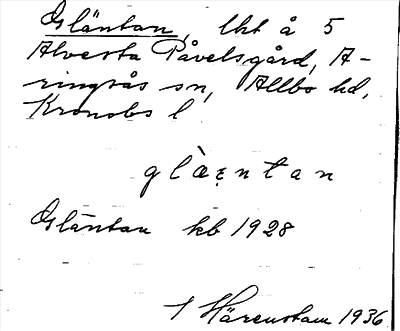 Gläntan, lht å 5
Alvesta Påvelsgård, A-
ringsås sn, Allbo hd,
Kronobs l
glàentan
Gläntan kb 1928
Härenstam 1936